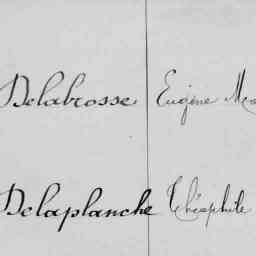 Delabrosse Eugène
Delaplanche Théophile